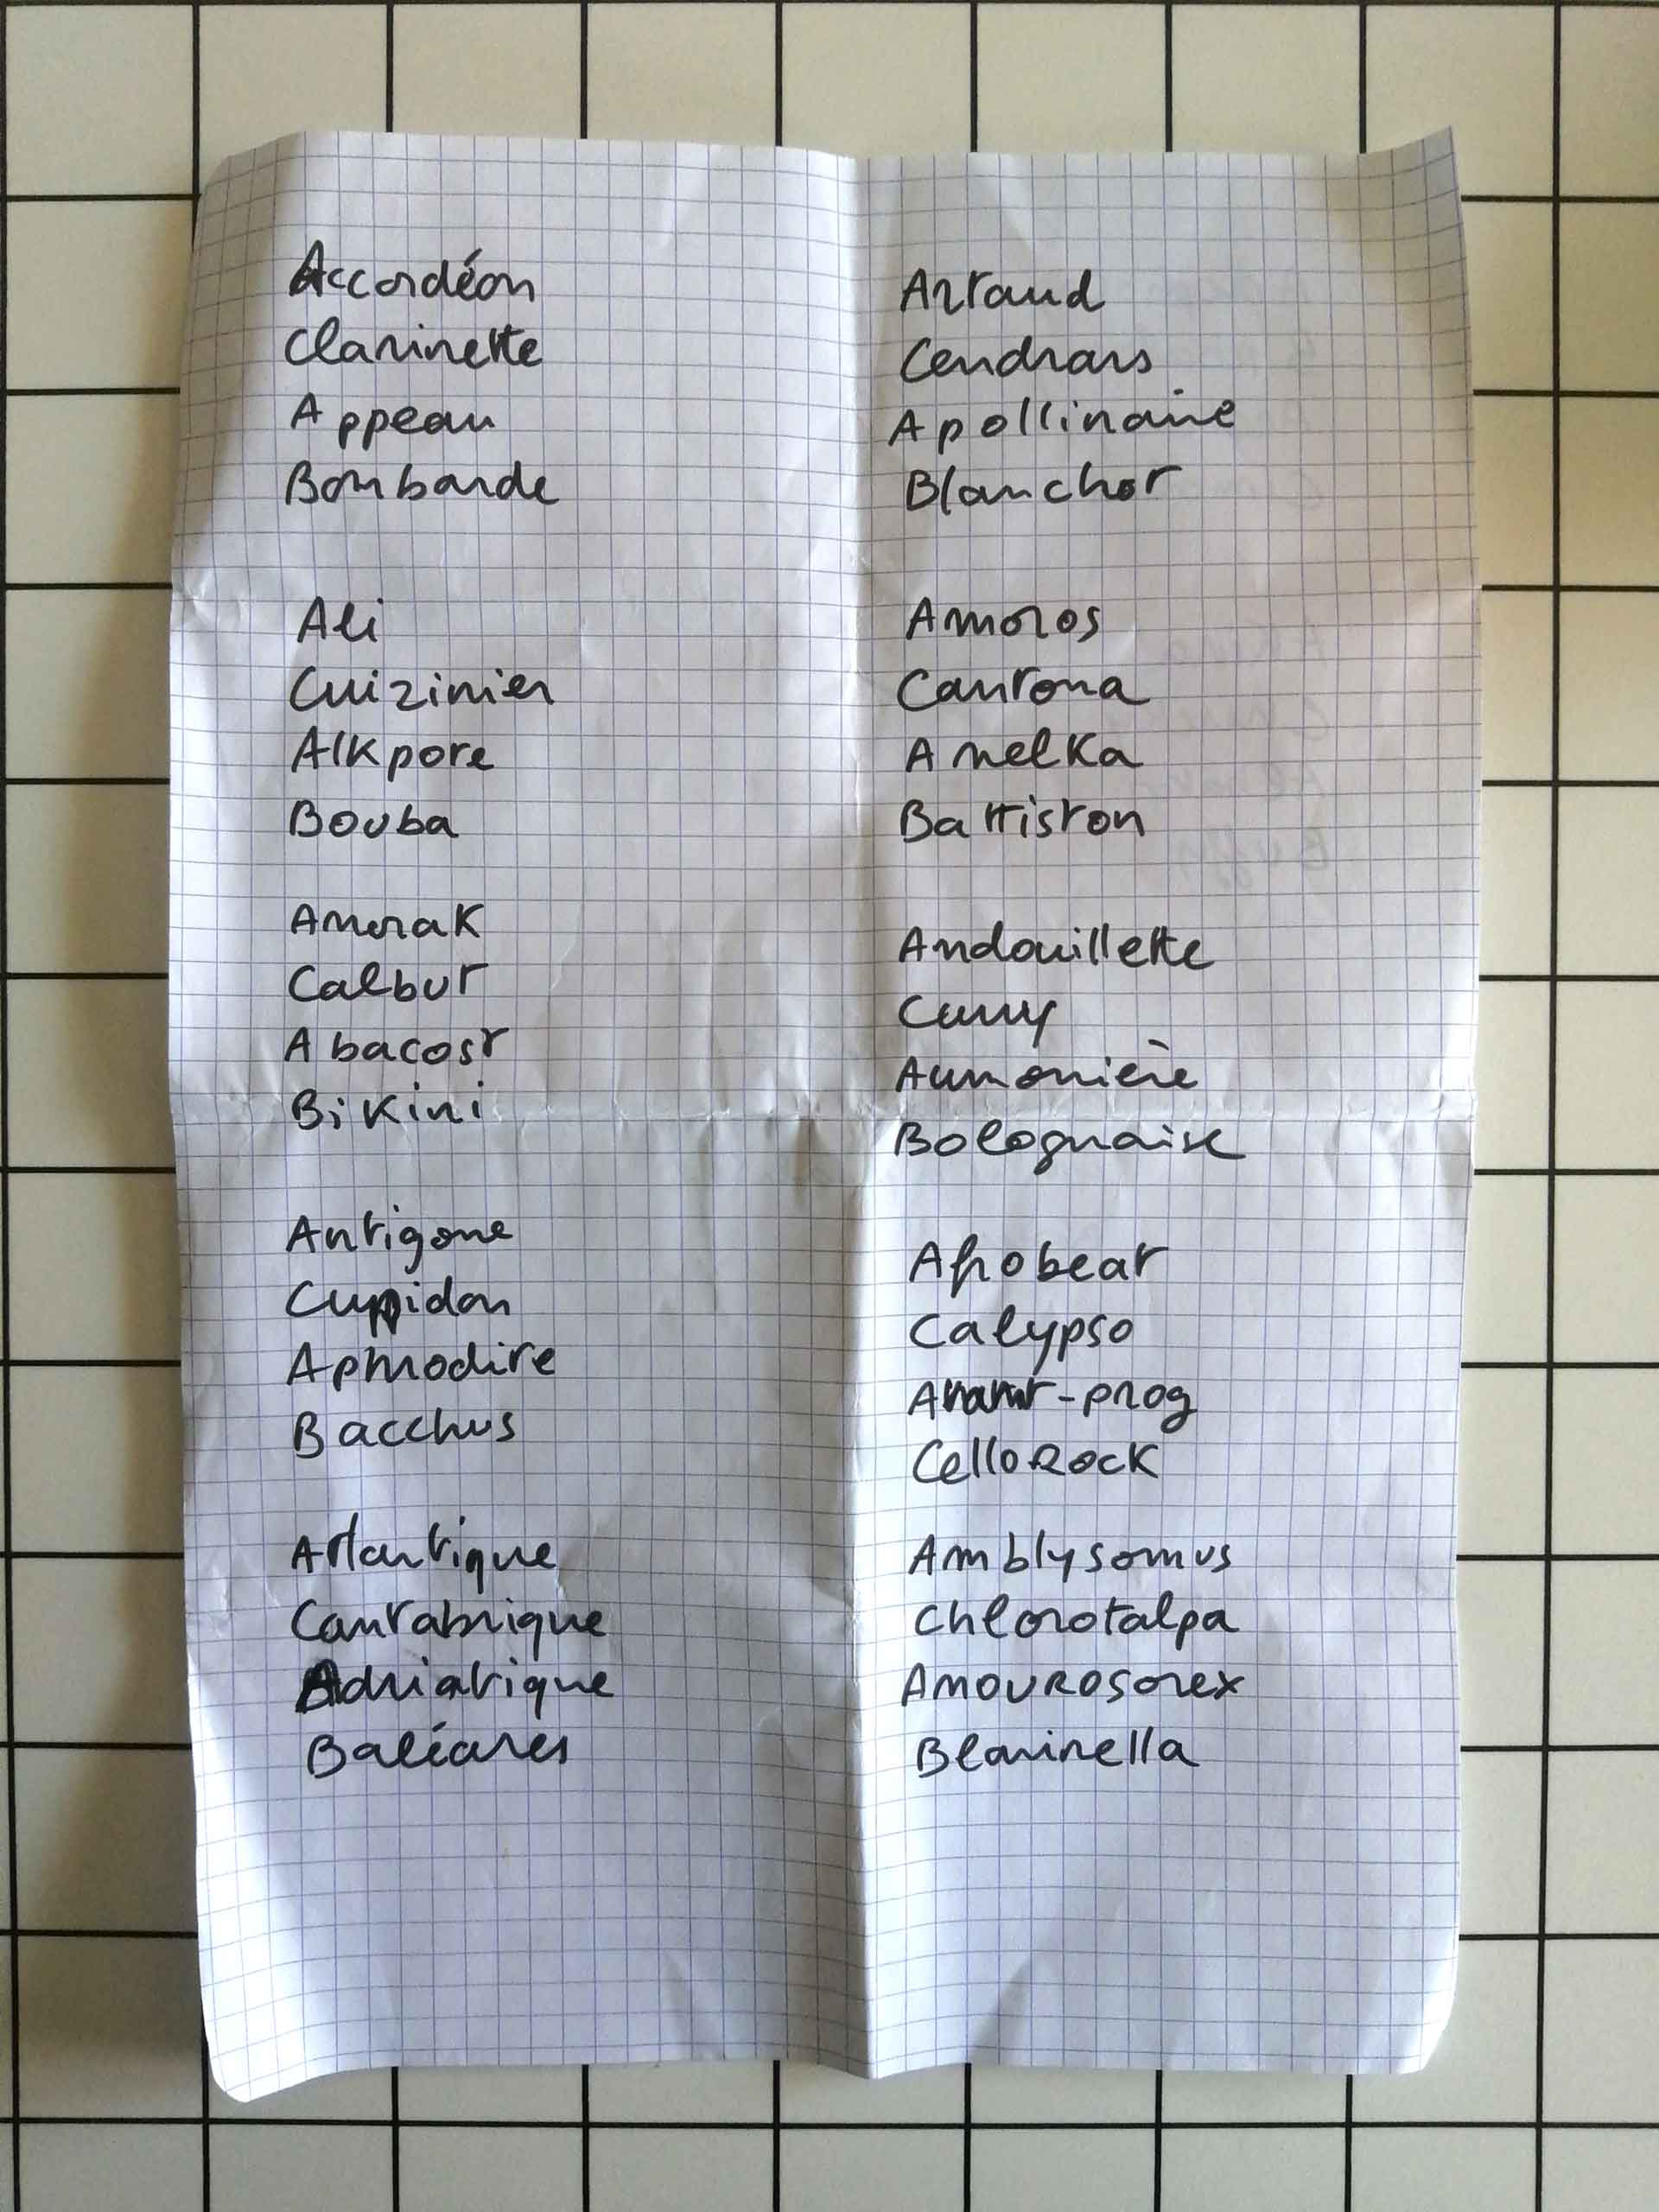 Accordéon
Clarinette
Appeau
Bombarde
Ali
Cuizinier
Alkpote
Bouba
Anorak
Calbut
Abacost
Bikini
Antigone
Cupidon
Aphrodite
Bacchus
Atlantique
Cantabrique
Adriatique
Baléares
Artaud
Cendrars
Apollinaire
Blanchot
Amoros
Cantona
Anelka
Battiston
Andouillette
Curry
Aumonière
Bolognaise
Afrobeat
Calypso
Avant-prog
CelloRock
Amblysomus
Chlorotalpa
Amourosorex
Blarinella